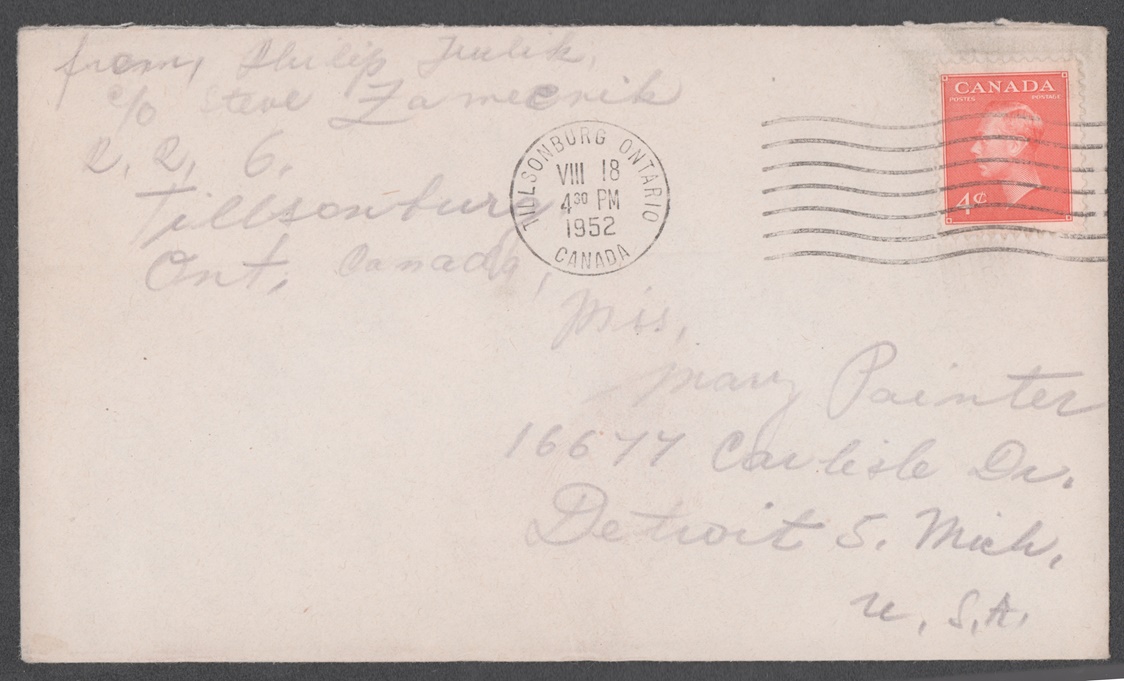 from, Philip
c/o Steve Zamecnik
R. R. 6.
Tillsonburg
Ont. Canada,
TILLSONBURG ONTARIO
VIII 18
4 30 PM
1952
CANADA
CANADA
POSTES POSTAGE
4¢
Miss,
Mary Painter
16677 Carlisle Dr.
Detroit 5. Mich.
U. S. A.